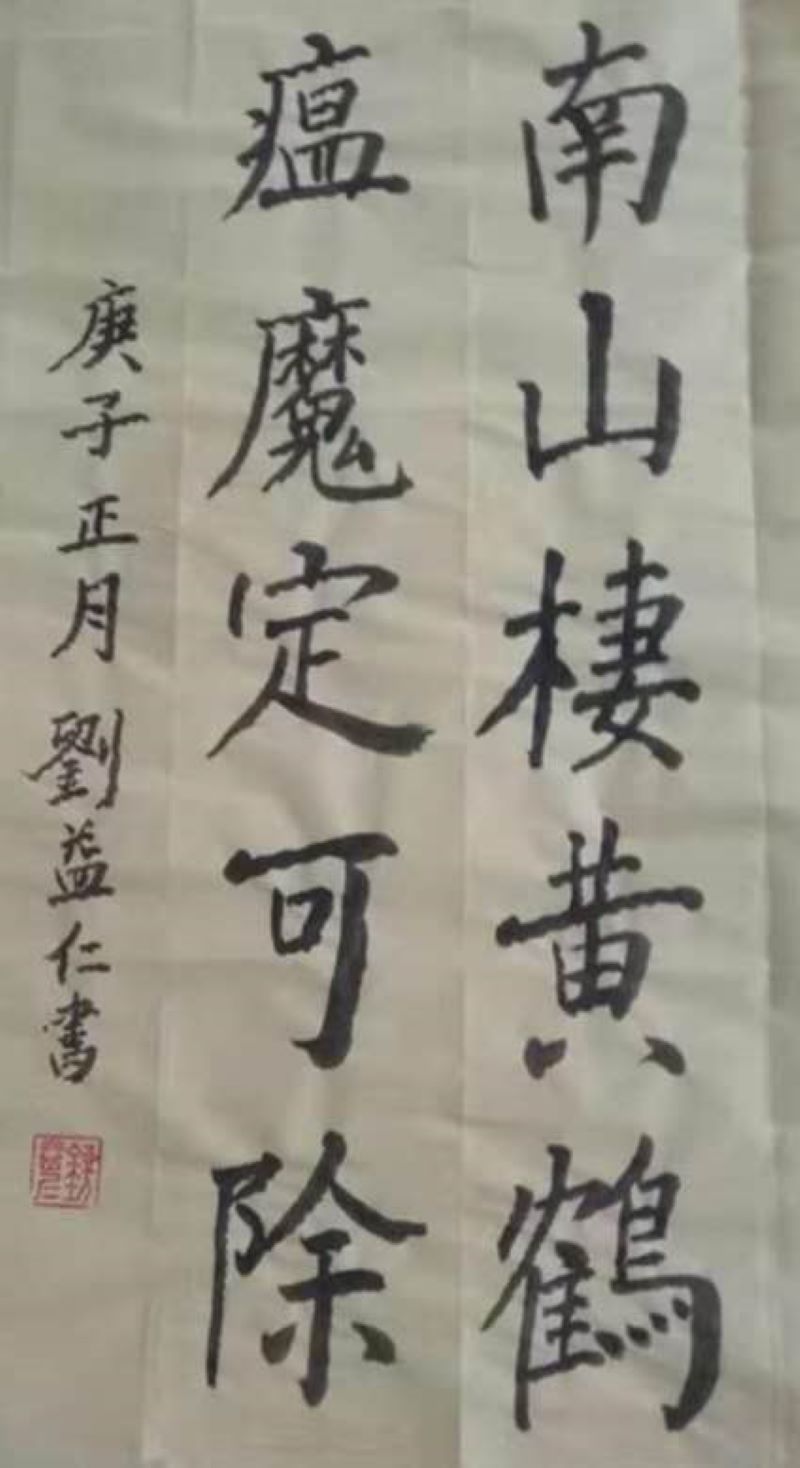 南山棲黄鶴
瘟魔定可除
庚子正月劉益仁書